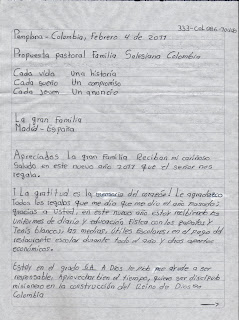 333-Col 5186-70226
Pamplona - Colombia, Febrero 4 de 2017
Propuesta pastoral Familia Salesiana Colombia
Cada vida Una historia
Cada sueño Un compromiso
Cada Joven Un anuncio
La gran Familia
Madrid - España
Apreciados La gran Familia Reciban mi cordial
Saludo en este nuevo año 2017 que el señor nos
regala.
¡La gratitud es la memoria del corazón! Le agradezco
Todos los regalos que me dio que me dio el año
gracias a Usted. en este nuevo año estoy recibiendo los
Uniformes de diario y educación física con los zapatos y
Tenis blancos, las medias, útiles escolares, en el pago del
restaurante escolar durante todo el año y otros aportes
económicos.
Estoy en el grado A Dios le pido me ayude a ser
responsable. Aprovechar bien el tiempo, quiero ser discípulo
misionero en la construcción del Reino de Dios en
Colombia